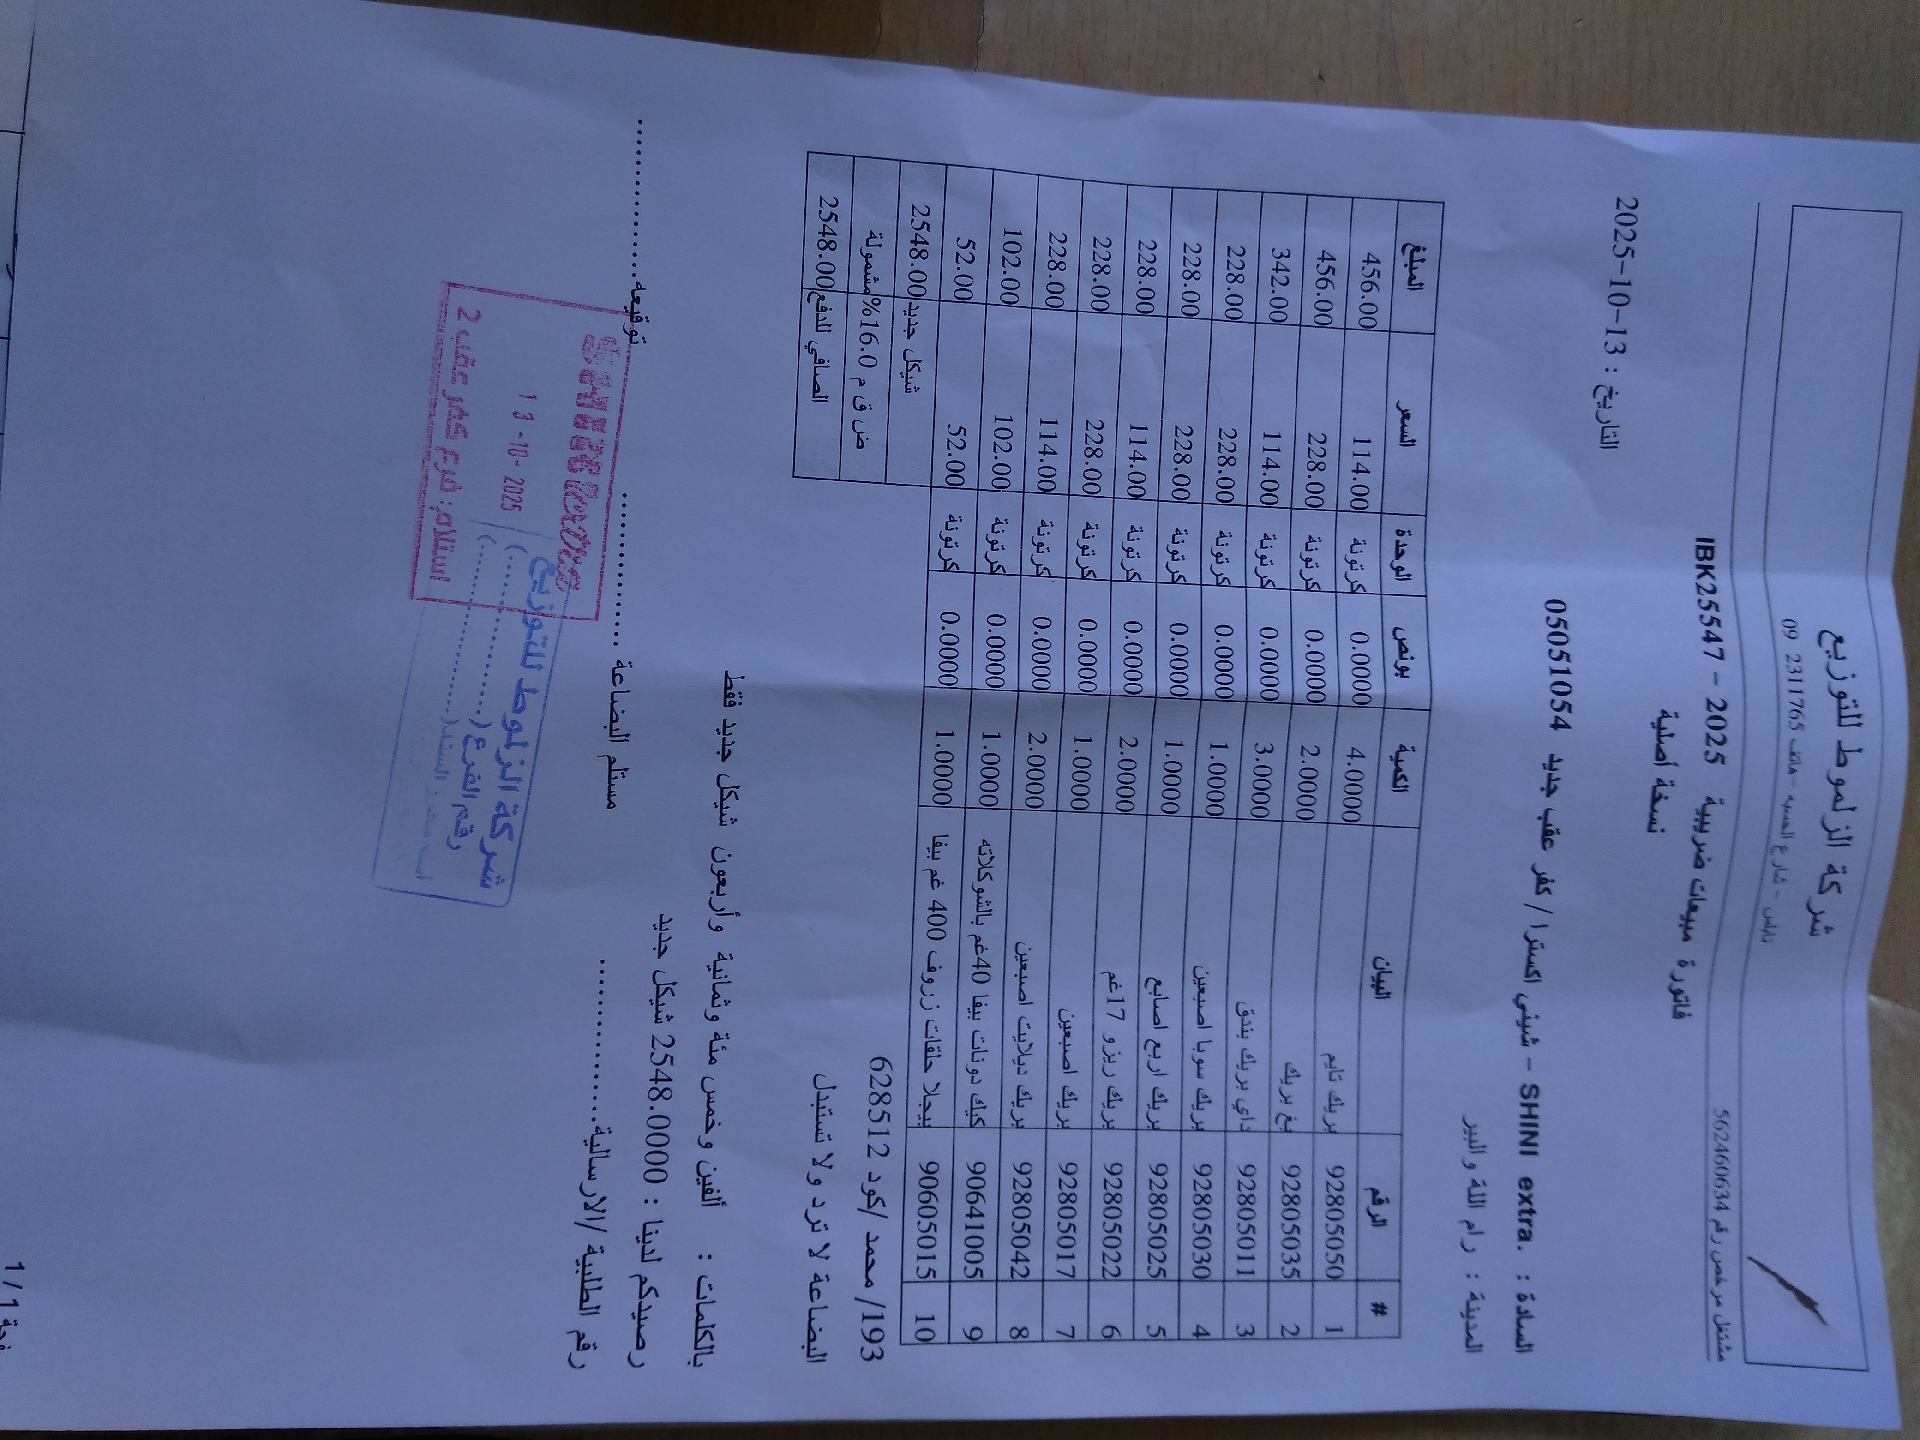 شركة الزلموط للتوزيع
نابلس - شارع الحسبه - هاتف 2311765 09
مشتغل مرخص رقم 562460634
فاتورة مبيعات ضريبية IBK25547 - 2025
نسخة أصلية
التاريخ : 13-10-2025
السادة : SHINI extra. - شيني اكسترا / كفر عقب جديد 05051054
المدينة : رام الله والبير
# الرقم البيان الكمية بونص الوحدة السعر المبلغ
1 92805050 بريك تايم 4.0000 0.0000 كرتونة 114.00 456.00
2 92805035 بغ بريك 2.0000 0.0000 كرتونة 228.00 456.00
3 92805011 داي بريك بندق 3.0000 0.0000 كرتونة 114.00 342.00
4 92805030 بريك سوبا اصبعين 1.0000 0.0000 كرتونة 228.00 228.00
5 92805025 بريك اربع اصابع 1.0000 0.0000 كرتونة 228.00 228.00
6 92805022 بريك ريزو 17غم 2.0000 0.0000 كرتونة 114.00 228.00
7 92805017 بريك اصبعين 1.0000 0.0000 كرتونة 228.00 228.00
8 92805042 بريك ديلايت اصبعين 2.0000 0.0000 كرتونة 114.00 228.00
9 90641005 كيك دونات بيفا 40غم بالشوكلاته 1.0000 0.0000 كرتونة 102.00 102.00
10 90605015 بيجلا حلقات زروف 400 غم بيفا 1.0000 0.0000 كرتونة 52.00 52.00
شيكل جديد 2548.00
ض ق م 16.0% مشمولة
الصافي للدفع 2548.00
193/ محمد /كود 628512
البضاعة لا ترد ولا تستبدل
بالكلمات : ألفين وخمس مئة وثمانية وأربعون شيكل جديد فقط
رصيدكم لدينا : 2548.0000 شيكل جديد
رقم الطلبية /الارسالية.................. مستلم البضاعة .................. توقيعه..................
SHINI extra
13-10-2025
استلام: فرع كفر عقب 2
شركة الزلموط للتوزيع
رقم الفرع (..................)
1/1